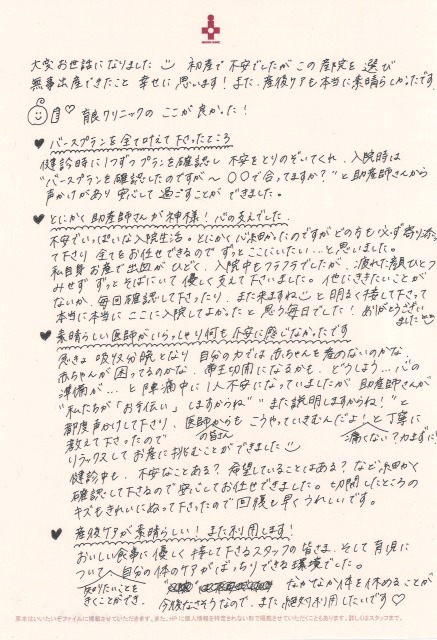 大変お世話になりました 初産で不安でしたがこの産院を選び
無事出産できたこと 幸せに思います！また、産後ケアも本当に素晴らしかったです
育良クリニックの ここが良かった！
♥ バースプランを全て叶えて下さったところ
健診時に1つずつプランを確認し 不安をとりのぞいてくれ、入院時は
"バースプランを確認したのですが〜 〇〇で合ってますか？"と助産師さんから
声かけがあり 安心して過ごすことができました。
♥ とにかく助産師さんが神様！心の支えでした。
不安でいっぱいな入院生活。とにかく心細かったのですが どの方も必ず寄り添っ
て下さり 全てをお任せできるので ずっとここにいたい…と思いました。
私自身お産で出血がひどく、入院中もフラフラでしたが、疲れた顔ひとつ
みせず ずっとそばにいて優しく支えて下さいました。他にききたいことが
ないか、毎回確認して下さったり、また来ますね と明るく接して下さって
本当に本当に ここに入院してよかったと思う毎日でした！ありがとうござい
ました
♥ 素晴らしい医師がいらっしゃり何も不安に感じなかったです
急きょ 吸引分娩となり 自分の力では赤ちゃんを産めないのかな
赤ちゃんが困ってるのかな、帝王切開になるかも、どうしよう…心の
準備が…と陣痛中に1人不安になっていましたが 助産師さんが
"私たちが「お手伝い」しますからね" "また説明しますからね！"と
都度声かけして下さり、医師からも こうやっていきむんだよ！と丁寧に
教えて下さったので の皆さん 痛くない？力まずに!
リラックスしてお産に挑むことができました
健診中も、不安なことある？希望していることはある？など細かく
確認して下さるので安心してお任せできました。切開したところの
キズもきれいにぬって下さったので回復も早くうれしいです。
♥ 産後ケアが素晴らしい！また利用します！
おいしい食事に優しく接して下さるスタッフの皆さま、そして育児に
ついて、自分の体のケアがばっちりできる環境でした。
知りたいことを なかなか体を休めることが
きくことができ、 今後なさそうなので、また絶対利用したいです♡